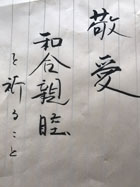 敬愛
和合親睦
を祈ること